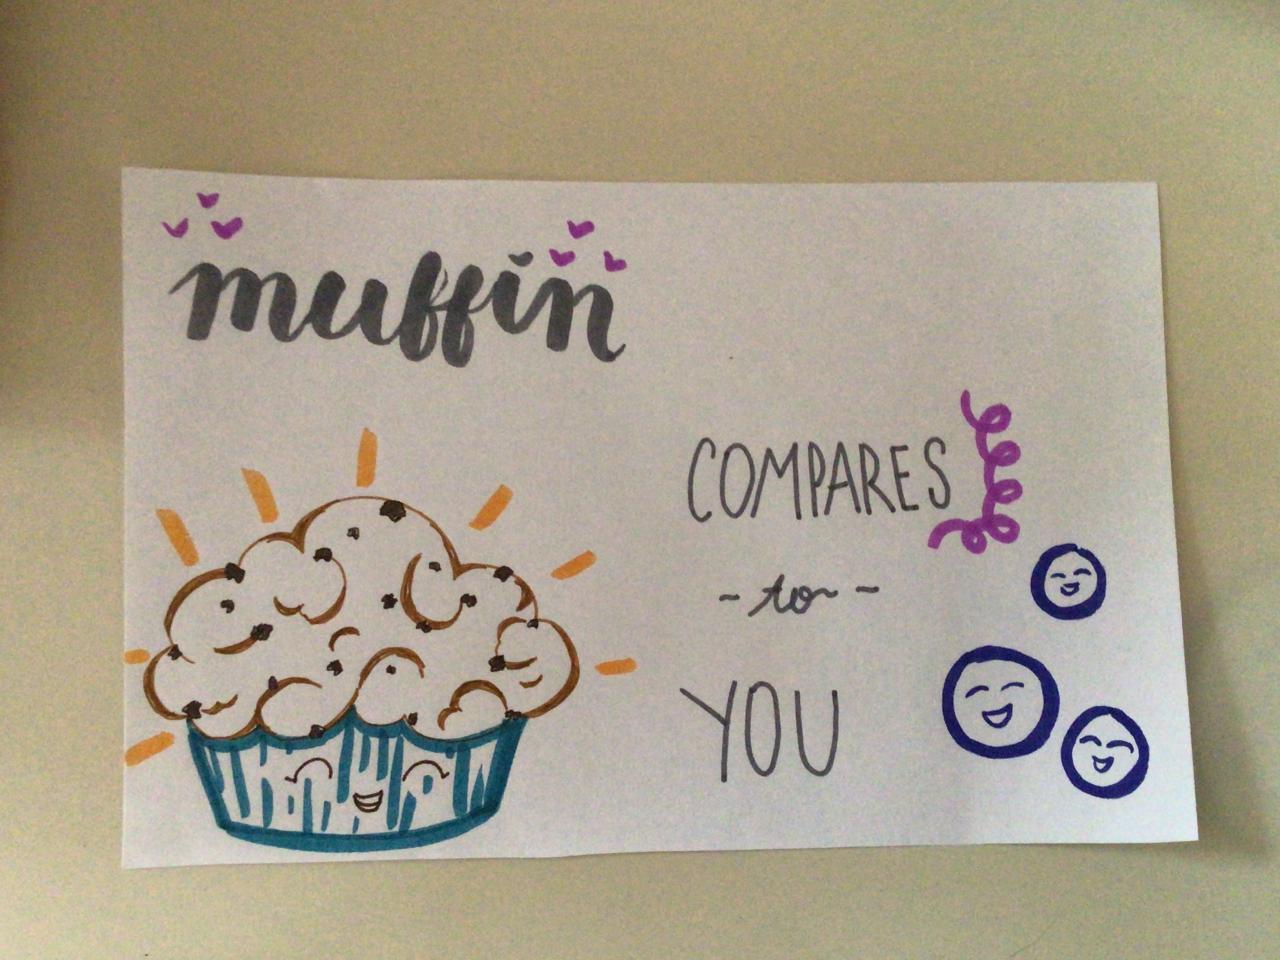 muffin
COMPARES
-to-
YOU